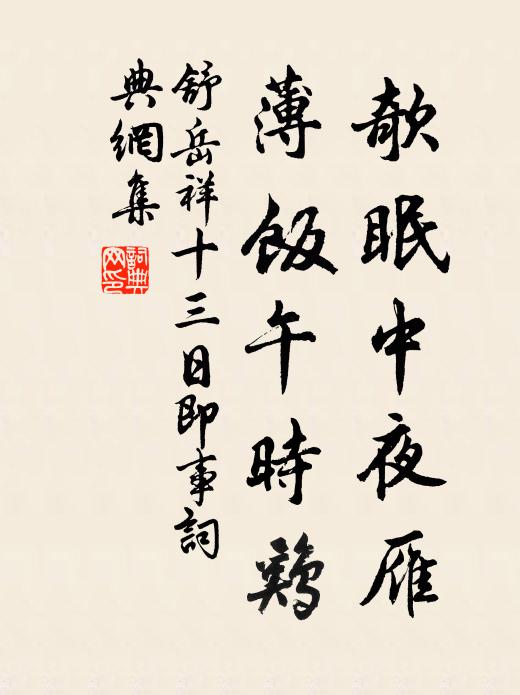 欹眠中夜雁
薄飯午時鶏
舒岳祥十三日即事詞
典網集
詞典網印